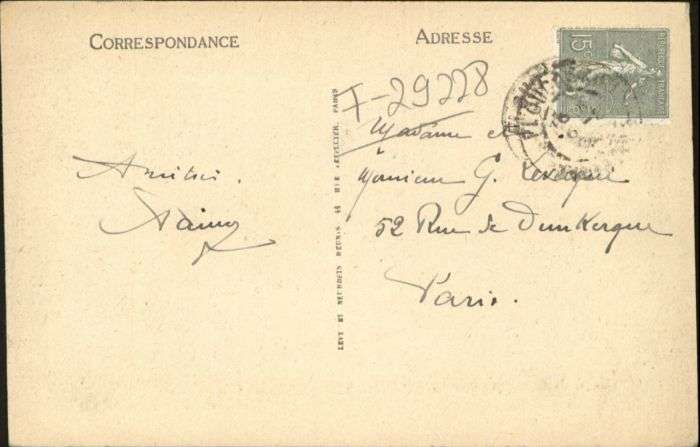 CORRESPONDANCE
ADRESSE
15
F-29228
Madame et
Monsieur G. Levecque
52 Rue de Dunkerque
Paris.
LEVY ET NEURDEIN RÉUNIS, 44 RUE LETELLIER, PARIS